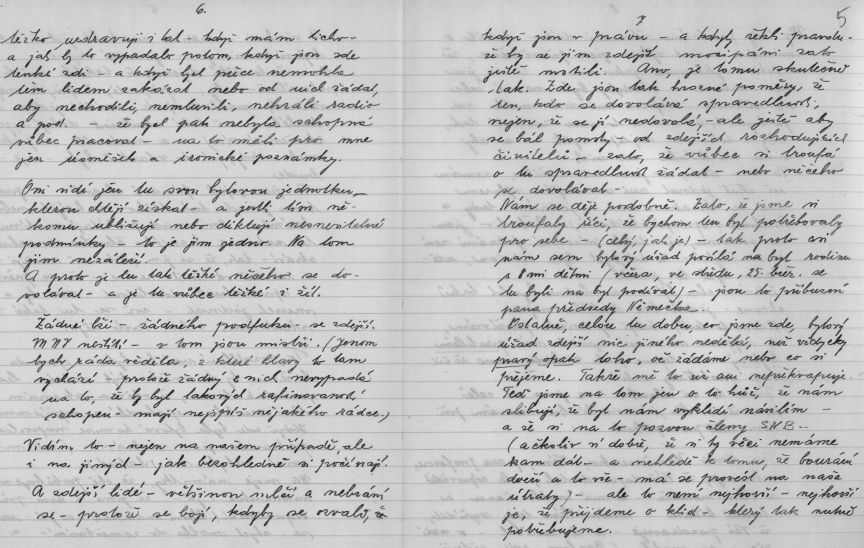 6.
těžko uzdravuji i tak - když mám ticho -
a jak by to vypadalo potom, když jsou zde
tenké zdi - a když bych přece nemohla
těm lidem zakázat nebo od nich žádat,
aby nechodili, nemluvili, nehráli radio
a pod. - že bych pak nebyla schopna
vůbec pracovat - na to měli pro mne
jen úsměšek a ironické poznámky.
Oni vidí jen tu svou bytovou jednotku,
kterou chtějí získat - a jestli tím ně-
komu ubližují nebo diktují nesnesitelné
podmínky - to je jim jedno. Na tom
jim nezáleží.
A proto je tu tak těžké něčeho se do-
volávat - a je tu vůbec těžké i žít.
Žádné lži - žádného podfuku - se zdejší
MNV neštítí - v tom jsou mistři. (Jenom
bych ráda věděla, z které hlavy to tam
vychází - protože žádný z nich nevypadá
na to, že by byl takových rafinovaností
schopen - mají nejspíš nějakého rádce.)
Vidím to - nejen na našem případě ale
i na jiných - jak bezohledně si počínají.
A zdejší lidé - většinou mlčí a nebrání
se - protože se bojí, kdyby se ozvali, že
7
5
když jsou v právu - a kdyby řekli pravdu -
že by se jim zdejší mocipáni za to
ještě mstili. Ano, je tomu skutečně
tak. Zde jsou tak hrozné poměry, že
ten, kdo se dovolává spravedlnosti,
nejen, že se jí nedovolá, - ale ještě aby
se bál pomsty - od zdejších rozhodujících
činitelů - zato, že vůbec si troufá
o tu spravedlnost žádat - nebo něčeho
se dovolávat -
Nám se děje podobně. Zato, že jsme si
troufaly říci, že bychom ten byt potřebovaly
pro sebe - (celý, jak je) - tak proto asi
nám sem bytový úřad posílá na byt rodinu
s 8 mi dětmi (včera, ve středu, 25. břez. se
tu byli na byt podívat) - jsou to příbuzní
pana předsedy Němečka.
Ostatně, celou tu dobu, co jsme zde, bytový
úřad zdejší nic jiného nedělá, než vždycky
pravý opak toho, oč žádáme nebo co si
přejeme. Takže mě to už ani nepřekvapuje.
Teď jsme na tom jen o to hůř, že nám
slibují, že byt nám vyklidí násilím -
a že si na to pozvou členy SNB -
(ačkoliv ví dobře, že si ty věci nemáme
kam dát - a nehledě k tomu, že bourání
dveří a to vše - má se provést na naše
útraty) - ale to není nejhorší - nejhorší
je, že přijdeme o klid - který tak nutně
potřebujeme.